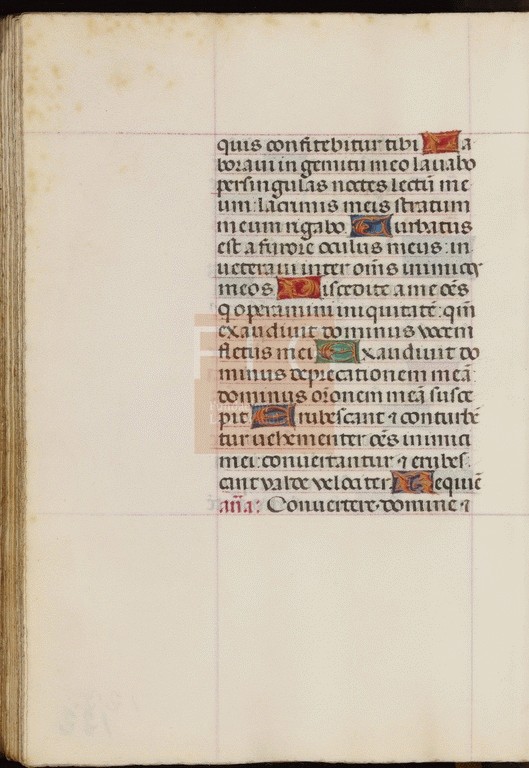 quis confitebitur tibi La
boraui in gemitu meo lauabo
per singulas noctes lectū me
um: lacrimis meis stratum
meum rigabo. Turbatus
est a furore oculus meus: in
ueteraui inter om̄s inimicos
meos Discedite a me oēs
q operamini iniquitatē: qm̄
exaudiuit dominus vocem
fletus mei Exaudiuit do
minus deprecationem meā:
dominus orōnem meā susce
pit Erubescant ⁊ conturbē
tur uehementer oēs inimici
mei: conuertantur ⁊ erubes
cant valde velociter. Requiē
añā: Conuertere domine ⁊